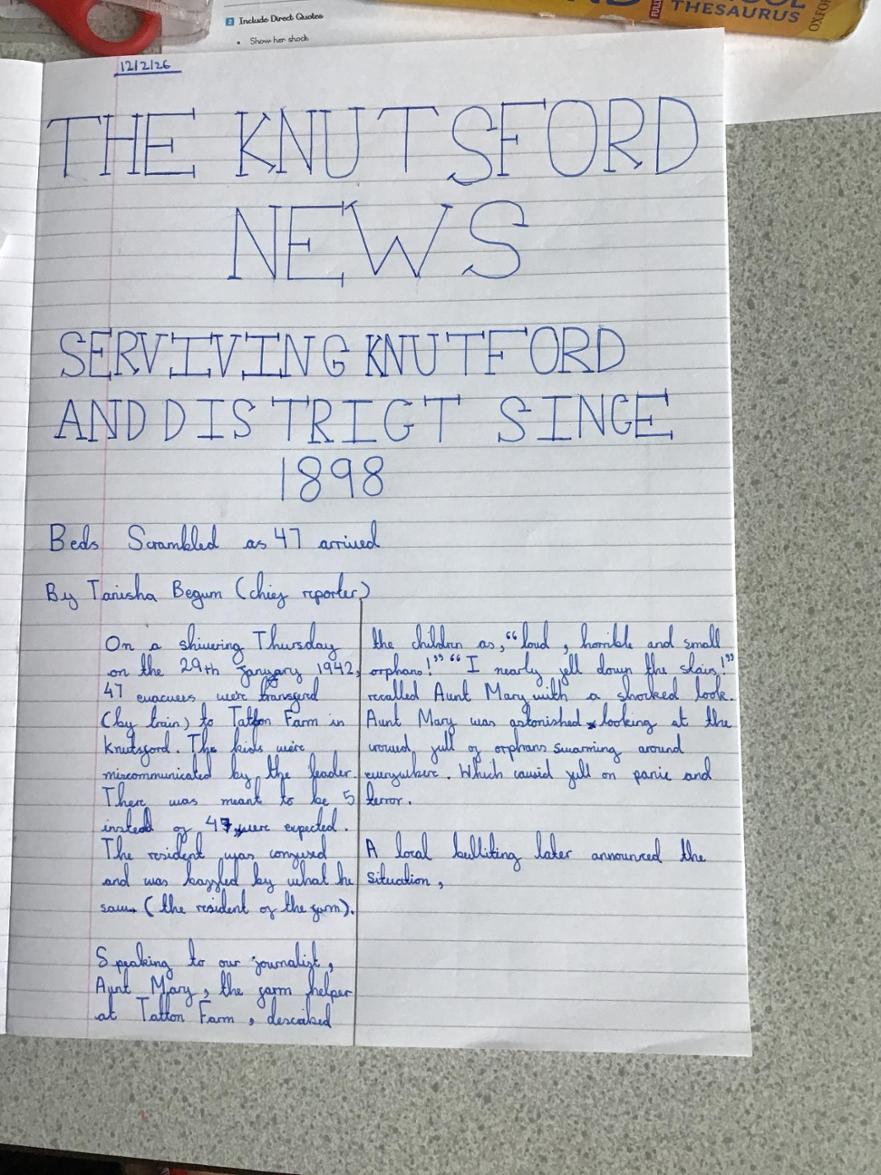 Include Direct Quotes
• Show her shock
THESAURUS
12/2/26
THE KNUTSFORD
NEWS
SERVIVING KNUTFORD
AND DISTRICT SINCE
1898
Beds Scrambled as 47 arrived
By Tanisha Begum (chief reporter)
On a shivering Thursday
on the 29th January 1942,
47 evacuees were transferd
(by train) to Tatton Farm in
Knutsford. The kids were
miscommunicated by the leader.
There was meant to be 5
instead of 47 were expected.
The resident was confused
and was baffled by what he
saw. (the resident of the farm).
Speaking to our journalist,
Aunt Mary, the farm helper
at Tatton Farm, described
the children as, “loud, horrible and small
orphans!” “I nearly fell down the stairs!”
recalled Aunt Mary with a shocked look.
Aunt Mary was astonished looking at the
crowd, full of orphans swarming around
everywhere. Which caused full on panic and
terror.
A local announced the
situation,